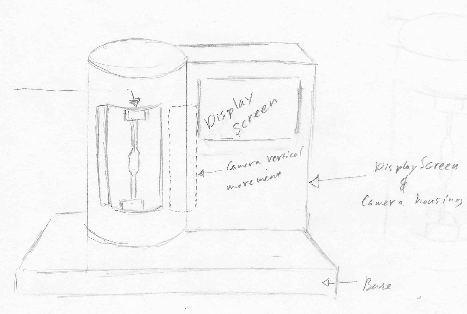 Display
Screen
Camera vertical
movement
Display Screen
&
Camera housing
Base